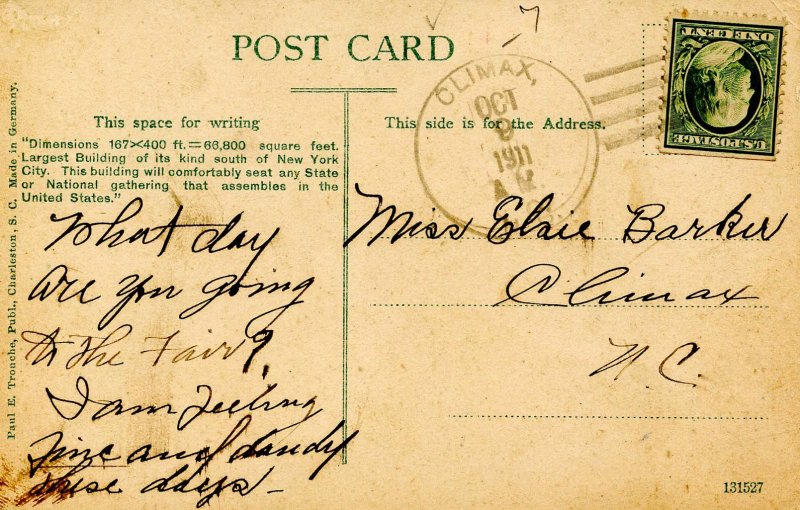 POST CARD
CLIMAX,
OCT
1911
ONE CENT
U.S. POSTAGE
This space for writing
"Dimensions 167×400 ft.=66,800 square feet.
Largest Building of its kind south of New York
City. This building will comfortably seat any State
or National gathering that assembles in the
United States."
What day
are you going
to the Fair?
I am feeling
fine and dandy
these days—
This side is for the Address.
Miss Elsie Barker
Climax
N.C.
Paul E. Trouche, Publ., Charleston, S. C. Made in Germany.
131527
7